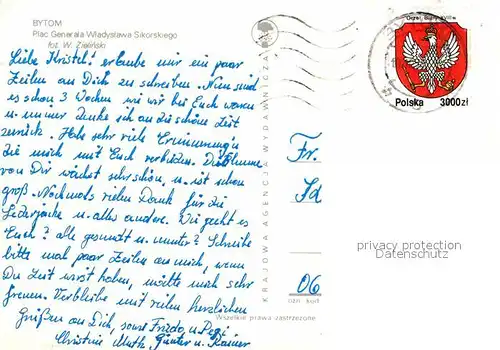 BYTOM
Plac Generała Władysława Sikorskiego
fot. W. Zieliński
Liebe Kristel! erlaube mir ein paar
Zeilen an Dich zu schreiben. Nun sind
es schon 3 Wochen wie wir bei Euch waren
u. immer denke ich an die schöne Zeit
zurück. Habe sehr viele Erinnerung'n
die mich mit Euch verbinden. Die Blumme
von Dir wächst sehr schön, u. ist schon
groß. Nochmals vielen Dank für die
Lederjacke u. alles andere. Wie geht es
Euch? alle gesundt u. munter? Schreibe
bitte mal paar Zeilen an mich, wenn
Du Zeit wirst haben, würde mich sehr
freuen. Verbleibe mit vielen herzlichen
Grüßen an Dich, sowie Frido u. Pegi
Christine Günter u. Rainer
KRAJOWA AGENCJA WYDAWNICZA
Polska 3000zł
Fr.
Jd
06
privacy protection
Datenschutz
Wszelkie prawa zastrzeżone